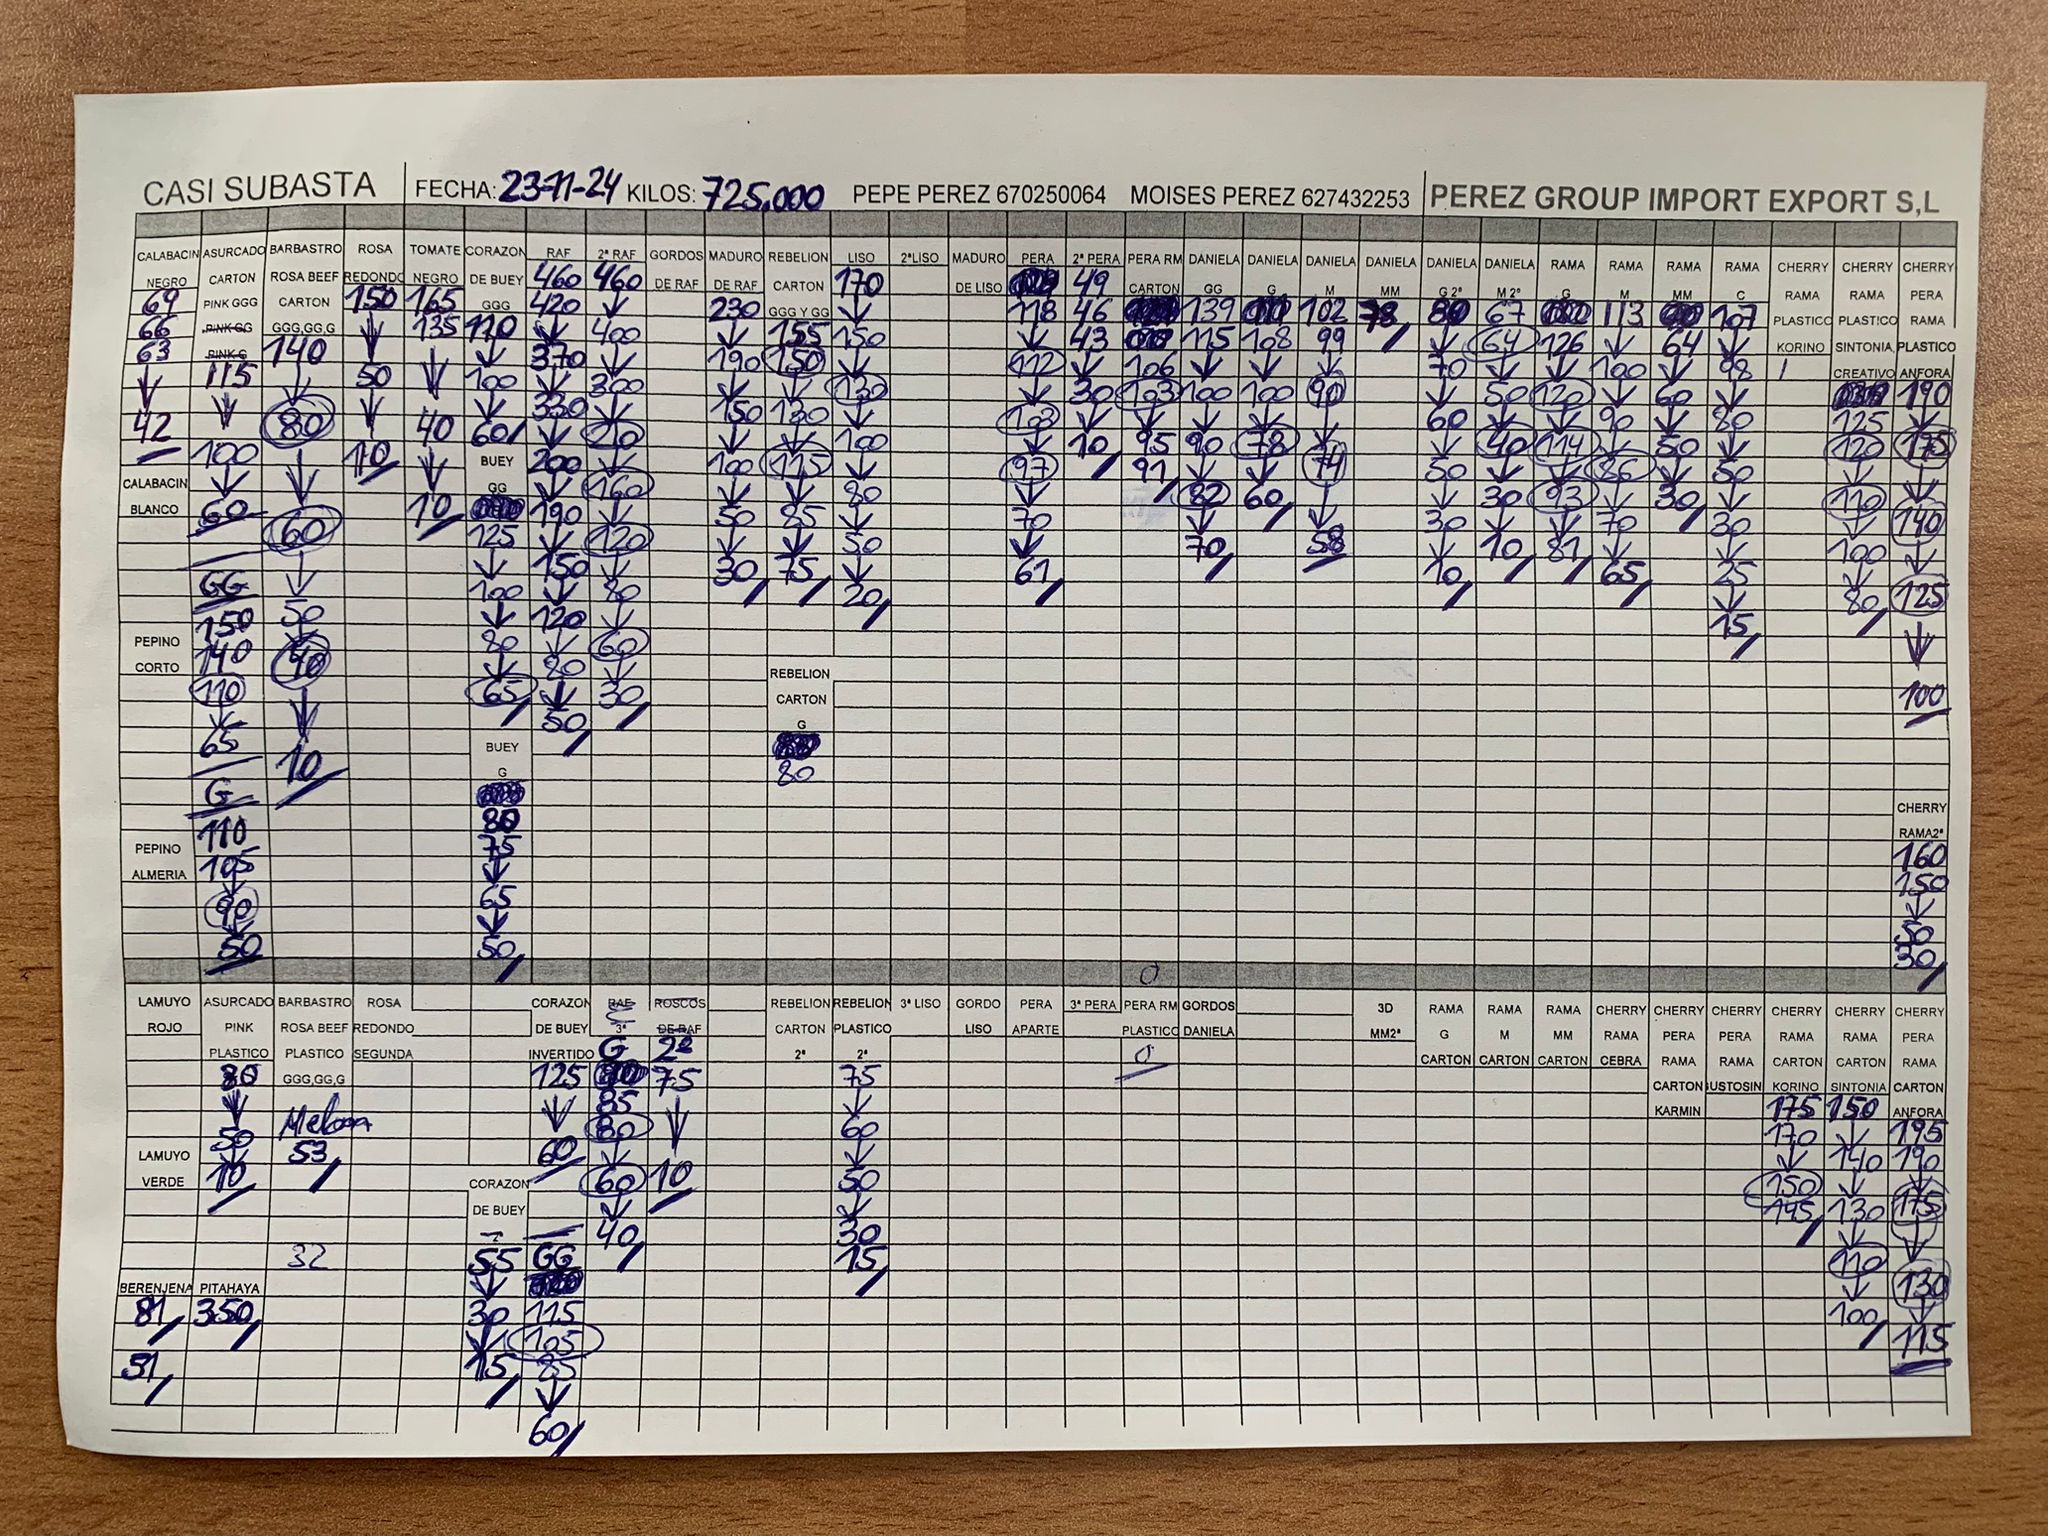 CASI SUBASTA FECHA: 23-11-24 KILOS: 725.000 PEPE PEREZ 670250064 MOISES PEREZ 627432253 PEREZ GROUP IMPORT EXPORT S,L
CALABACIN NEGRO
69
66
63
↓
42
CALABACIN BLANCO
PEPINO CORTO
PEPINO ALMERIA
ASURCADO CARTON
PINK GGG
PINK GG
PINK G
115
↓
100
↓
60
GG
150
140
110
↓
65
G
110
105
↓
90
↓
50
BARBASTRO ROSA BEEF CARTON
GGG,GG,G
140
↓
80
↓
60
↓
50
40
↓
10
ROSA REDONDO
150
↓
50
↓
10
TOMATE NEGRO
165
135
↓
40
↓
10
CORAZON DE BUEY
GGG
120
↓
100
↓
60
BUEY
GG
125
↓
100
↓
80
↓
65
BUEY
G
80
75
↓
65
↓
50
RAF
460
420
↓
370
↓
330
↓
200
↓
190
↓
150
↓
120
↓
80
↓
50
2ª RAF
460
↓
400
↓
300
↓
210
↓
160
↓
120
↓
80
↓
60
↓
30
GORDOS DE RAF
MADURO DE RAF
230
↓
190
↓
150
↓
100
↓
50
↓
30
REBELION CARTON
GGG Y GG
155
150
↓
130
↓
115
↓
85
↓
75
REBELION CARTON
G
80
LISO
170
↓
150
↓
130
↓
100
↓
80
↓
50
↓
20
2ªLISO
MADURO DE LISO
PERA
118
↓
112
↓
103
↓
97
↓
70
↓
61
2ª PERA
49
46
43
↓
30
↓
10
PERA RM CARTON
106
↓
103
↓
95
91
DANIELA GG
139
115
↓
100
↓
90
↓
82
↓
70
DANIELA G
108
↓
100
↓
78
↓
60
DANIELA M
102
99
↓
90
↓
74
↓
58
DANIELA MM
78
DANIELA G 2ª
80
↓
70
↓
60
↓
50
↓
30
↓
10
DANIELA M 2ª
67
64
↓
50
↓
40
↓
30
↓
10
RAMA G
126
↓
120
↓
114
↓
93
↓
81
RAMA M
113
↓
100
↓
90
↓
86
↓
70
↓
65
RAMA MM
64
↓
60
↓
50
↓
30
RAMA C
107
↓
98
↓
80
↓
50
↓
30
↓
25
↓
15
CHERRY RAMA PLASTICO KORINO
/
CHERRY RAMA PLASTICO SINTONIA, CREATIVO
125
120
↓
110
↓
100
↓
80
CHERRY PERA RAMA PLASTICO ANFORA
190
↓
175
↓
140
↓
125
↓
100
CHERRY RAMA2ª
160
150
↓
50
30
LAMUYO ROJO
LAMUYO VERDE
BERENJENA
81
51
ASURCADO PINK PLASTICO
80
↓
50
↓
10
PITAHAYA
350
BARBASTRO ROSA BEEF PLASTICO
GGG,GG,G
Melona
53
32
ROSA REDONDO SEGUNDA
CORAZON DE BUEY
55
↓
30
↓
15
CORAZON DE BUEY INVERTIDO
125
↓
60
GG
115
105
85
↓
60
RAF
3ª
G
85
80
↓
60
↓
40
ROSCOS DE RAF
2ª
75
↓
10
REBELION CARTON 2ª
REBELION PLASTICO 2ª
75
↓
60
↓
50
↓
30
15
3ª LISO
GORDO LISO
PERA APARTE
3ª PERA
0
PERA RM PLASTICO
0
GORDOS DANIELA
3D MM2ª
RAMA G CARTON
RAMA M CARTON
RAMA MM CARTON
CHERRY RAMA CEBRA
CHERRY PERA RAMA CARTON KARMIN
CHERRY PERA RAMA USTOSIN
CHERRY RAMA CARTON KORINO
175
170
↓
150
145
CHERRY RAMA CARTON SINTONIA
150
↓
140
↓
130
↓
110
↓
100
CHERRY PERA RAMA CARTON ANFORA
195
190
↓
175
↓
130
↓
115